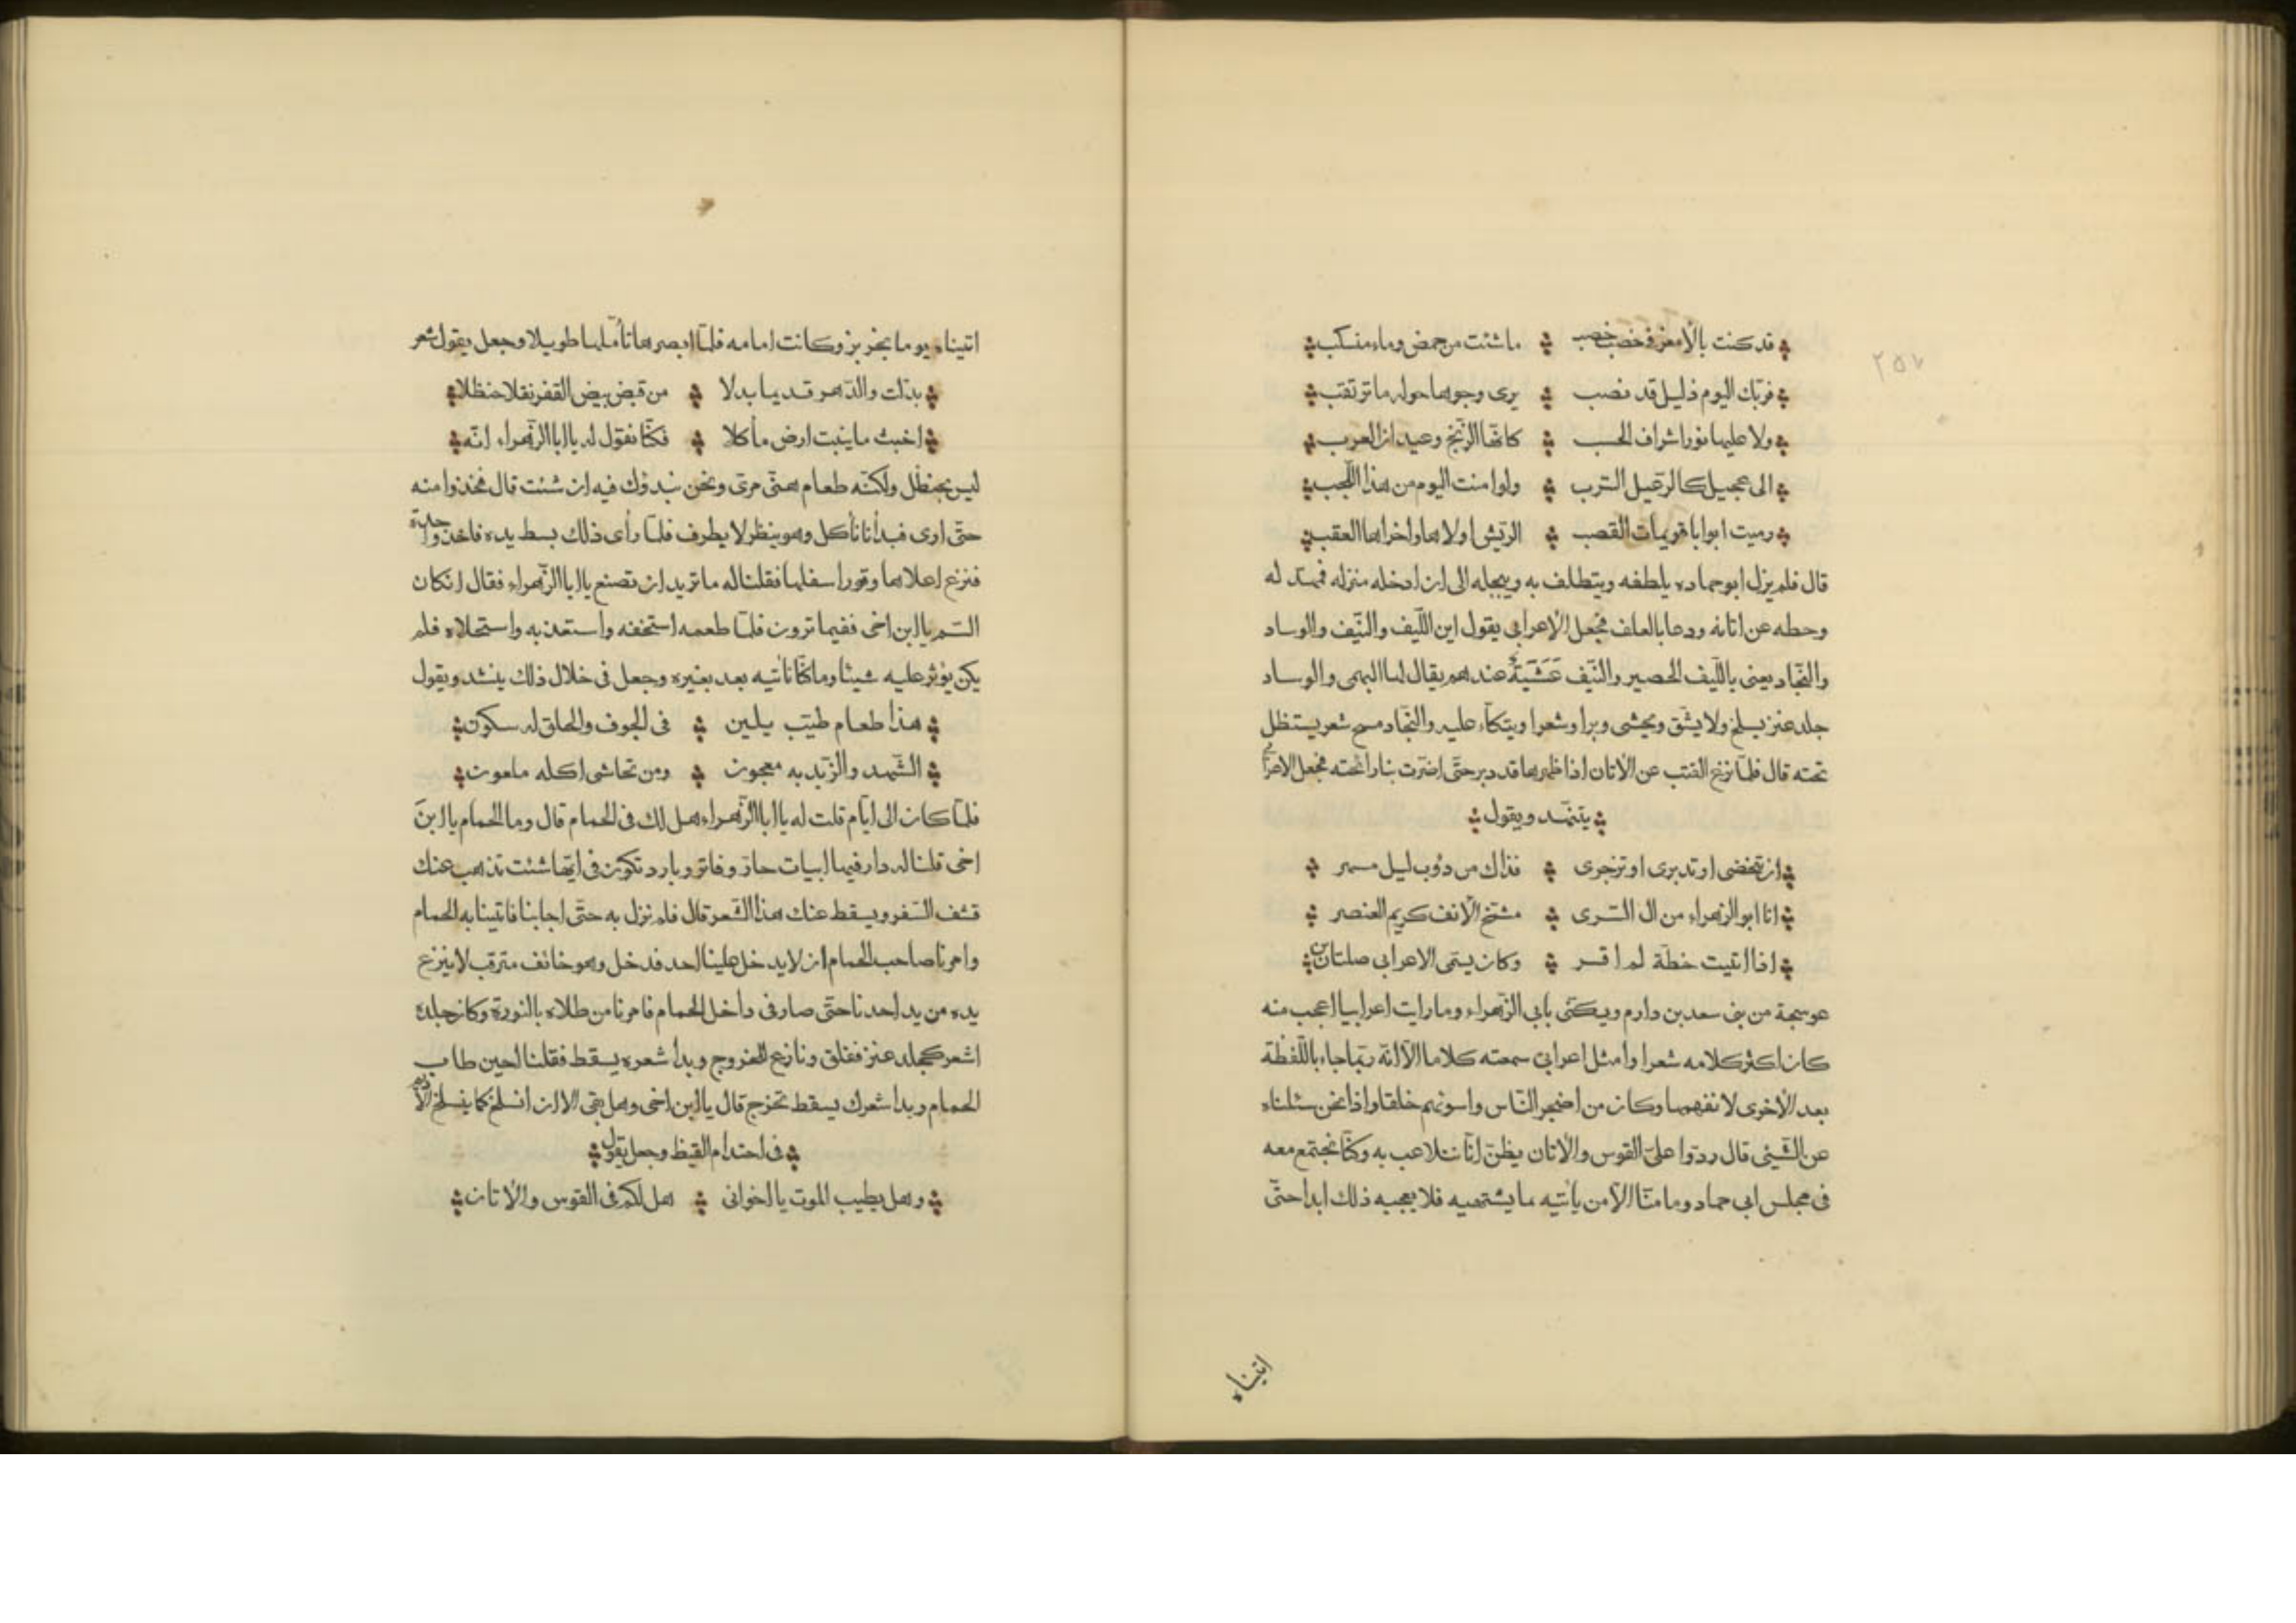 قد كنت بالأمعز في خصب خصب ما شئت من حمض وماء منسكب
فربك اليوم ذليل قد نصب يرى وجوها حوله ما ترتقب
ولا عليها نور اشراف الحسب كأنها الزنج وعبدان العرب
الى عجيل كالرعيل الترب ولو امنت اليوم من هذا اللجب
رميت ابوابا قويمات القصب الريش اولاها واخراها العقب
قال فلم يزل ابو حماده يلطفه ويتطلف به ويبجله الى ان ادخله منزله فمهد له
وحطه عن اتانه ودعا بالعلف فجعل الاعرابي يقول اين الليف والنيف والوساد
والنجاد يعنى بالليف الحصير والنيف عشبة عندهم يقال لها البهمى والوساد
جلد عنز يسلخ ولا يشق ويحشى وبرا وشعرا ويتكأ عليه والنجاد مسح شعر يستظل
تحته قال فلما نزع القتب عن الاتان اذا ظهرها قد دبر حتى اضرت بنا رائحته فجعل الاعرابي
يتنهد ويقول
ان تنحضى او تدبرى او تزجرى فذاك من دؤب ليل مسهر
انا ابو الزهراء من ال السرى مشمخ الأنف كريم العنصر
اذا اتيت خطة لم اقسر وكان يسمى الاعرابي صلتان بن
عوسجة من بنى سعد بن دارم ويكنى بابي الزهراء وما رايت اعرابيا اعجب منه
كان اكثر كلامه شعرا وامثل اعرابي سمعته كلاما الا انه ربما جاء باللفظة
بعد الأخرى لا نفهمها وكان من اضجر الناس واسوئهم خلقا واذا نحن سئلناه
عن الشيئ قال ردوا على القوس والاتان يظن انا نتلاعب به وكنا نجتمع معه
فى مجلس ابي حماد وما منا الا من يأتيه ما يشتهيه فلا يعجبه ذلك ابدا حتى
اتيناه
اتيناه يوما بخربز وكانت امامه فلما ابصرها تأملها طويلا وجعل يقول شعر
بدلت والدهر قديما بدلا من قيض بيض القفر نقلا حنظلا
اخبث ما ينبت ارض مأكلا فكنا نقول له يا ابا الزهراء انه
ليس بحنظل ولكنه طعام هنى مرى ونحن نبدؤك فيه ان شئت قال فخذوا منه
حتى ارى فبدأنا نأكل وهو ينظر لا يطرف فلما رأى ذلك بسط يده فاخذ واحدة
فنزع اعلاها وقور اسفلها فقلنا له ما تريد ان تصنع يا ابا الزهراء فقال ان كان
السم يا ابن اخى ففيما ترون فلما طعمه استخفه واستعذبه واستحلاه فلم
يكن يؤثر عليه شيئا وما كنا نأتيه بعد بغيره وجعل فى خلال ذلك ينشد ويقول
هذا طعام طيب يلين فى الجوف والحلق له سكون
الشهد والزبد به معجون ومن تحاشى اكله ملعون
فلما كان الى ايام قلت له يا ابا الزهراء هل لك فى الحمام قال وما الحمام يا ابن
اخى قلنا له دار فيها ابيات حار وفاتر وبارد تكون فى ايها شئت تذهب عنك
قشف السفر ويسقط عنك هذا الشعر قال فلم نزل به حتى اجابنا فاتينا به الحمام
وامرنا صاحب الحمام ان لا يدخل علينا احد فدخل وهو خائف مترقب لا ينزع
يده من يد احدنا حتى صار فى داخل الحمام فامرنا من طلاه بالنورة وكان جلده
اشعر كجلد عنز فقلق ونازع للخروج وبدأ شعره يسقط فقلنا احين طاب
الحمام وبدا شعرك يسقط تخرج قال يا ابن اخى وهل بقى الا ان انسلخ كما ينسلخ الأديم
فى احتدام القيظ وجعل يقول
وهل يطيب الموت يا اخوانى هل لكم فى القوس والاتان